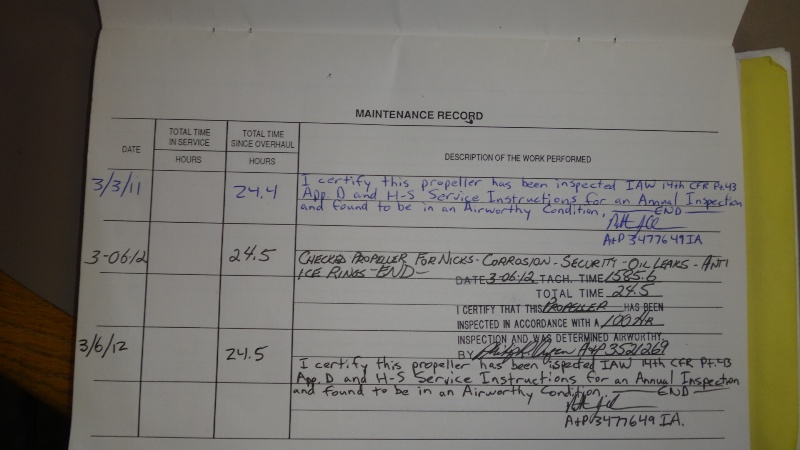 MAINTENANCE RECORD
DATE
TOTAL TIME IN SERVICE
HOURS
TOTAL TIME SINCE OVERHAUL
HOURS
DESCRIPTION OF THE WORK PERFORMED
3/3/11 24.4 I certify this propeller has been inspected IAW 14th CFR Pt.43
App. D and H-S Service Instructions for an Annual Inspection
and found to be in an Airworthy Condition. END
A+P 3477649 IA
3-06/12 24.5 CHECKED PROPELLER FOR NICKS-CORROSION-SECURITY-OIL LEAKS-ANTI
ICE RINGS-END-
DATE 3-06-12 TACH. TIME 1585.6
TOTAL TIME 24.5
I CERTIFY THAT THIS PROPELLER HAS BEEN
INSPECTED IN ACCORDANCE WITH A 100 HR
INSPECTION AND WAS DETERMINED AIRWORTHY
BY A+P 3521269
3/6/12 24.5 I certify this propeller has been ispected IAW 14th CFR Pt.43
App. D and H-S Service Instructions for an Annual Inspection
and found to be in an Airworthy Condition END
A+P 3477649 IA.